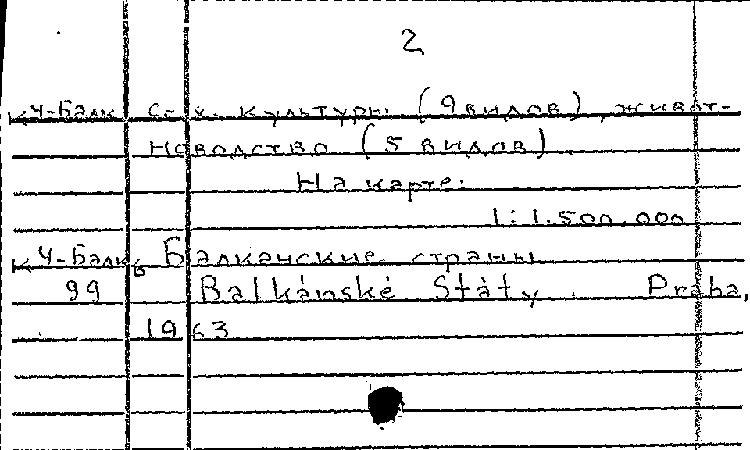 2
К4-Балк С.-х. культуры (9 видов), живот-
новодство (5 видов)
На карте:
1:1.500.000
К4-Балк, Балканские страны
99 Balkánské Státy. Praha,
1963